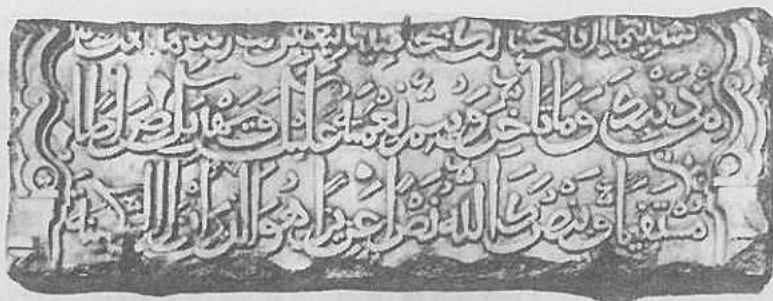 إنا فتحنا لك فتحا مبينا ليغفر لك الله ما تقدم
من ذَنْبِكَ وَمَا تَأَخَّرَ وَيُتِمَّ نِعْمَتَهُ عَلَيْكَ وَيَهْدِيَكَ صِرَاطًا
مُسْتَقِيمًا وَيَنْصُرَكَ اللهُ نَصْرًا عَزِيزًا هُوَ الَّذِي أَنْزَلَ السَّكِينَةَ